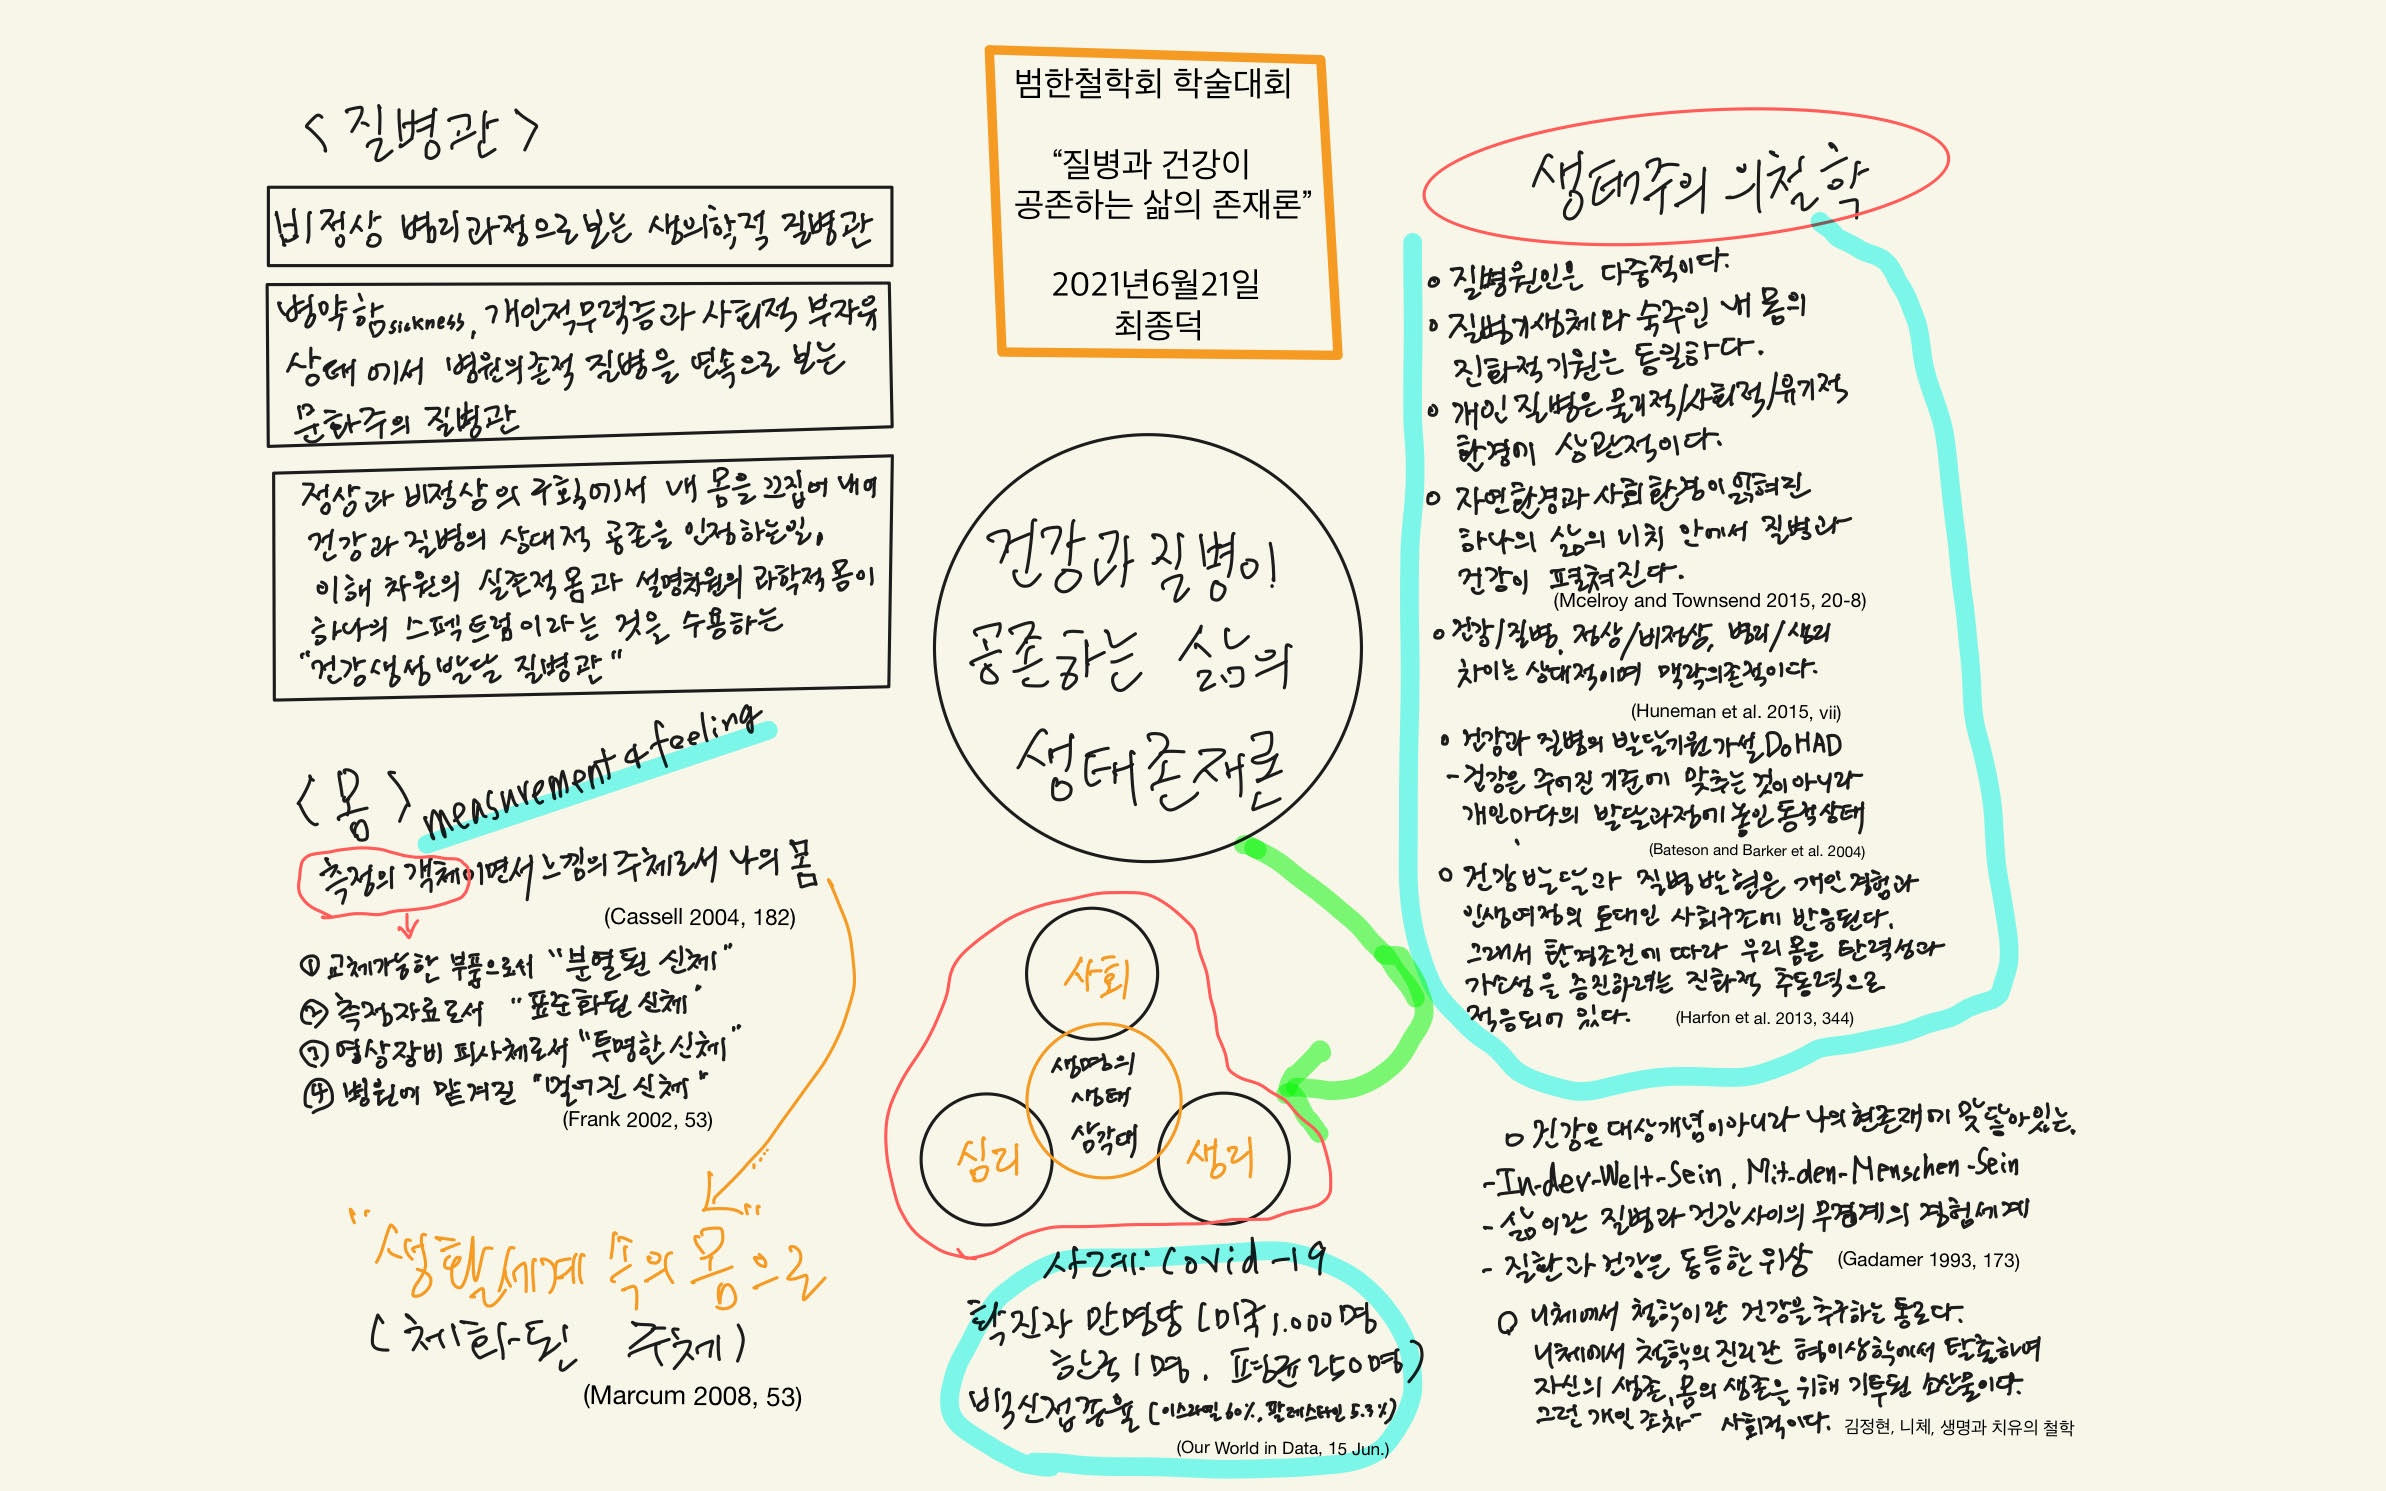 범한철학회 학술대회
“질병과 건강이
공존하는 삶의 존재론”
2021년6월21일
최종덕
<질병관>
비정상 병리과정으로 보는 생의학적 질병관
병약함sickness, 개인적무력증과 사회적 부자유
상태에서 병원의존적 질병을 연속으로 보는
문화주의 질병관
정상과 비정상의 구획에서 내 몸을 끄집어 내어
건강과 질병의 상대적 공존을 인정하는일,
이해 차원의 실존적 몸과 설명차원의 과학적 몸이
하나의 스펙트럼이라는 것을 수용하는
"건강생성 발달 질병관"
<몸> measurement & feeling
측정의 객체이면서 느낌의 주체로서 나의 몸
(Cassell 2004, 182)
① 교체가능한 부품으로서 "분열된 신체"
② 측정자료로서 "표준화된 신체"
③ 영상장비 피사체로서 "투명한 신체"
④ 병원에 맡겨진 "멀어진 신체"
(Frank 2002, 53)
"생활세계 속의 몸으로"
(체화된 주체)
(Marcum 2008, 53)
건강과 질병이
공존하는 삶의
생태존재론
사회
생명의
생태
삼각대
심리
생리
사례: Covid-19
확진자 만명당 (미국 1.000명
한국 1명. 평균 250명)
백신접종율 (이스라엘 60%, 팔레스타인 5.3%)
(Our World in Data, 15 Jun.)
생태주의 의철학
o 질병원인은 다중적이다.
o 질병기생체와 숙주인 내 몸의
진화적기원은 동일하다.
o 개인 질병은 물리적/사회적/유기적
환경에 상관적이다.
o 자연환경과 사회환경이 얽혀진
하나의 삶의 니치 안에서 질병과
건강이 펼쳐진다.
(Mcelroy and Townsend 2015, 20-8)
o 건강/질병, 정상/비정상, 병리/생리
차이는 상대적이며 맥락의존적이다.
(Huneman et al. 2015, vii)
o 건강과 질병의 발달기원가설 DoHAD
- 건강은 주어진 기준에 맞추는 것이 아니라
개인마다의 발달과정에 놓인 동적상태
(Bateson and Barker et al. 2004)
o 건강발달과 질병발현은 개인경험과
인생여정의 토대인 사회구조에 반응된다.
그래서 환경조건에 따라 우리 몸은 탄력성과
가소성을 증진하려는 진화적 추동력으로
적응되어 있다. (Harfon et al. 2013, 344)
o 건강은 대상개념이 아니라 나의 현존재에 맞닿아있는.
- In-der-Welt-Sein, Mit-den-Menschen-Sein
- 삶이란 질병과 건강사이의 무경계의 경험세계
- 질환과 건강은 동등한 위상 (Gadamer 1993, 173)
o 니체에서 철학이란 건강을 추구하는 통로다.
니체에서 철학의 진리란 형이상학에서 탈출하여
자신의 생존, 몸의 생존을 위해 기투된 소산물이다.
그런 개인 조차 사회적이다. 김정현, 니체, 생명과 치유의 철학